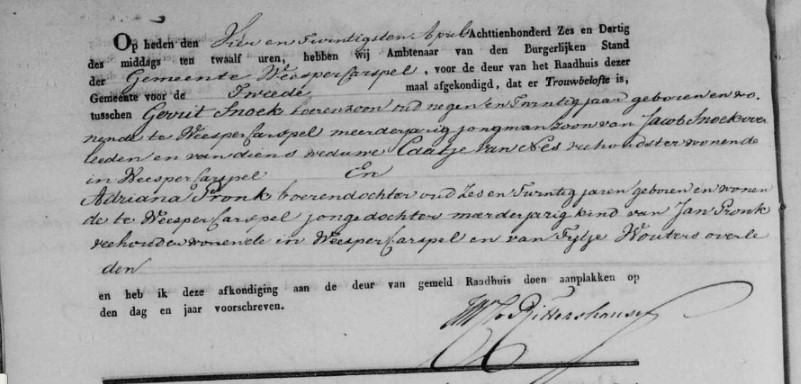 Op heden den Vier en Twintigsten April Achttienhonderd Zes en Dertig
des middags ten twaalf uren, hebben wij Ambtenaar van den Burgerlijken Stand
der Gemeente Weesper Carspel, voor de deur van het Raadhuis dezer
Gemeente voor de Tweede maal afgekondigd, dat er Trouwbelofte is,
tusschen Gerrit Snoek boerenzoon oud negen en Twintig jaar geboren en wo-
nende te Weesper Carspel meerderjarig jongman zoon van Jacob Snoek over
leeden en van diens weduwe Caatje van Nes veehoudster wonende
in Weesper Carspel En
Adriana Pronk boerendochter oud Zes en Twintig jaren geboren en wonen
de te Weesper Carspel jonge dochter meerderjarig kind van Jan Pronk
veehouder wonende in Weesper Carspel en van Fytje Wouters overle
den
en heb ik deze afkondiging aan de deur van gemeld Raadhuis doen aanplakken op
den dag en jaar voorschreven.
Rittershausen